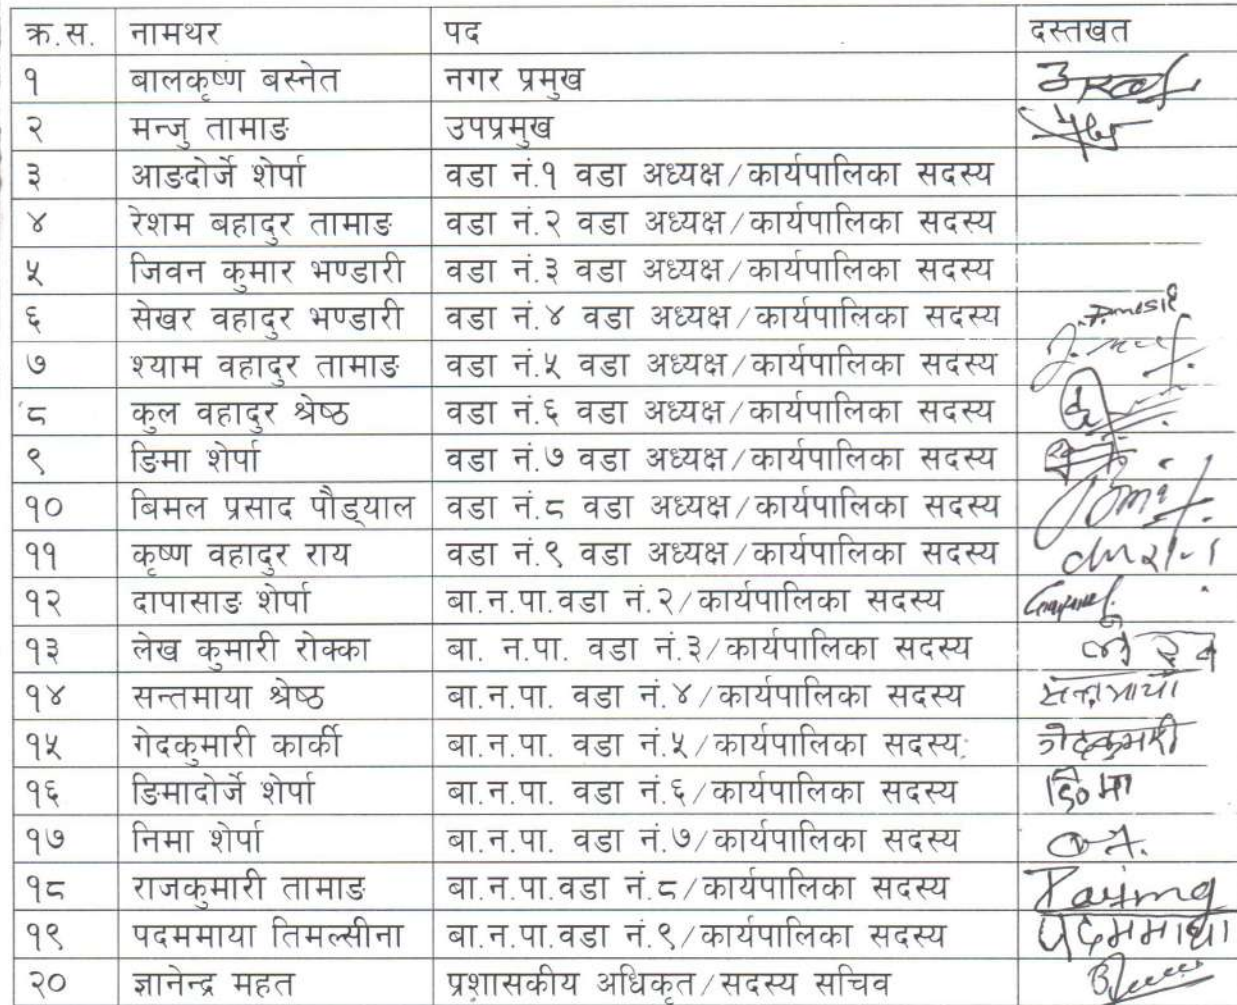 क्र.स. नामथर पद दस्तखत
१ बालकृष्ण बस्नेत नगर प्रमुख
२ मन्जु तामाङ उपप्रमुख
३ आङदोर्जे शेर्पा वडा नं.१ वडा अध्यक्ष/कार्यपालिका सदस्य
४ रेशम बहादुर तामाङ वडा नं.२ वडा अध्यक्ष/कार्यपालिका सदस्य
५ जिवन कुमार भण्डारी वडा नं.३ वडा अध्यक्ष/कार्यपालिका सदस्य
६ सेखर वहादुर भण्डारी वडा नं.४ वडा अध्यक्ष/कार्यपालिका सदस्य
७ श्याम वहादुर तामाङ वडा नं.५ वडा अध्यक्ष/कार्यपालिका सदस्य
८ कुल वहादुर श्रेष्ठ वडा नं.६ वडा अध्यक्ष/कार्यपालिका सदस्य
९ ङिमा शेर्पा वडा नं.७ वडा अध्यक्ष/कार्यपालिका सदस्य
१० बिमल प्रसाद पौड्याल वडा नं.८ वडा अध्यक्ष/कार्यपालिका सदस्य
११ कृष्ण वहादुर राय वडा नं.९ वडा अध्यक्ष/कार्यपालिका सदस्य
१२ दापासाङ शेर्पा बा.न.पा.वडा नं.२/कार्यपालिका सदस्य
१३ लेख कुमारी रोक्का बा. न.पा. वडा नं.३/कार्यपालिका सदस्य
१४ सन्तमाया श्रेष्ठ बा.न.पा. वडा नं.४/कार्यपालिका सदस्य सन्तमाया
१५ गेदकुमारी कार्की बा.न.पा. वडा नं.५/कार्यपालिका सदस्य गेदकुमारी
१६ ङिमादोर्जे शेर्पा बा.न.पा. वडा नं.६/कार्यपालिका सदस्य
१७ निमा शेर्पा बा.न.पा. वडा नं.७/कार्यपालिका सदस्य
१८ राजकुमारी तामाङ बा.न.पा.वडा नं.८/कार्यपालिका सदस्य
१९ पदममाया तिमल्सीना बा.न.पा.वडा नं.९/कार्यपालिका सदस्य पदममाया
२० ज्ञानेन्द्र महत प्रशासकीय अधिकृत/सदस्य सचिव